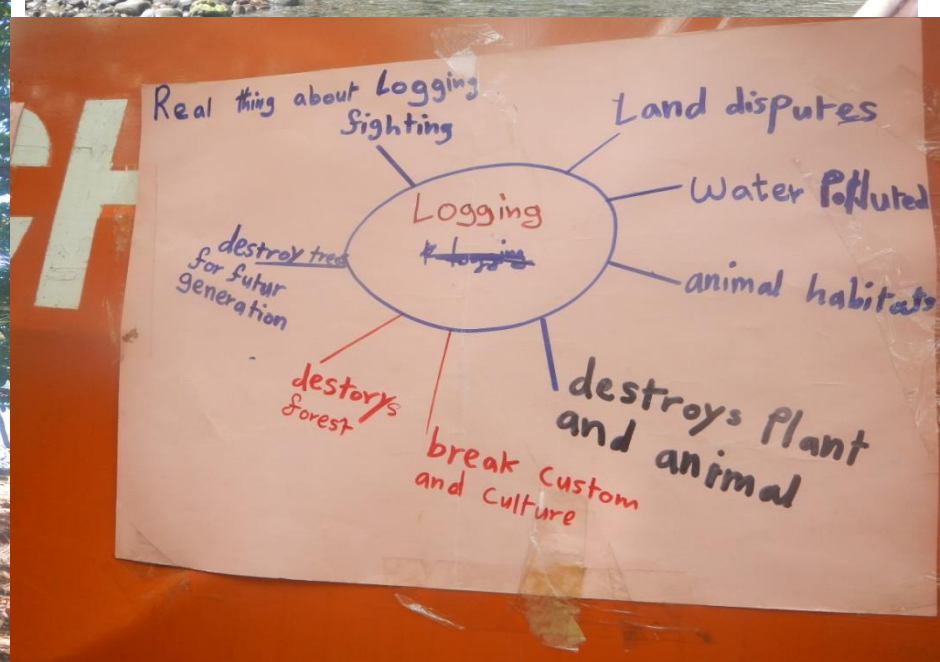 CH
Real thing about Logging
fighting
Land disputes
Water Polluted
animal habitats
Logging
destroy tree
for futur
generation
destorys
forest
break custom
and culture
destroys Plant
and animal